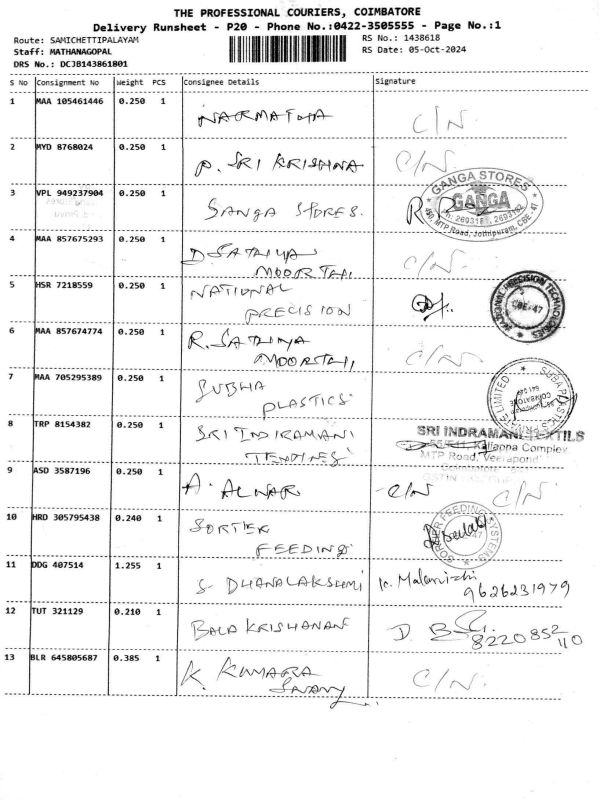 THE PROFESSIONAL COURIERS, COIMBATORE
Delivery Runsheet - P20 - Phone No.:0422-3505555 - Page No.:1
Route: SAMICHETTIPALAYAM RS No.: 1438618
Staff: MATHANAGOPAL RS Date: 05-Oct-2024
DRS No.: DCJB143861801
S No Consignment No Weight PCS Consignee Details Signature
1 MAA 105461446 0.250 1 NARMATHA C/N.
2 MYD 8768024 0.250 1 P. SRI KRISHNA C/N.
3 VPL 949237904 0.250 1 SANGA STORES.
GANGA STORES
GANGA
MTP Road, Jothipuram, CBE - 47
4 MAA 857675293 0.250 1 D. SATHIYA C/N.
MOORTHI
5 HSR 7218559 0.250 1 NATIONAL
PRECISION
NATIONAL PRECISION TECHNOLOGIES
CBE-47
6 MAA 857674774 0.250 1 R. SATHIYA C/N.
MOORTHI
7 MAA 705295389 0.250 1 SUBHA
PLASTICS
SUBA PLASTICS PRIVATE LIMITED
COIMBATORE
8 TRP 8154382 0.250 1 SRI INDIRAMANI
SRI INDRAMANI TEXTILS
Kaliappa Complex
MTP Road, Veerapondi
9 ASD 3587196 0.250 1 A. ALWAR C/N C/N.
10 HRD 305795438 0.240 1 SORTER
FEEDING
SORTER FEEDING SYSTEMS
11 DDG 407514 1.255 1 S. DHANALAKSHMI K. Malarvizhi
9626231979
12 TUT 321129 0.210 1 BALA KRISHANAN D. B
8220852
110
13 BLR 645805687 0.385 1 K. KUMARA C/N.
SWAMY